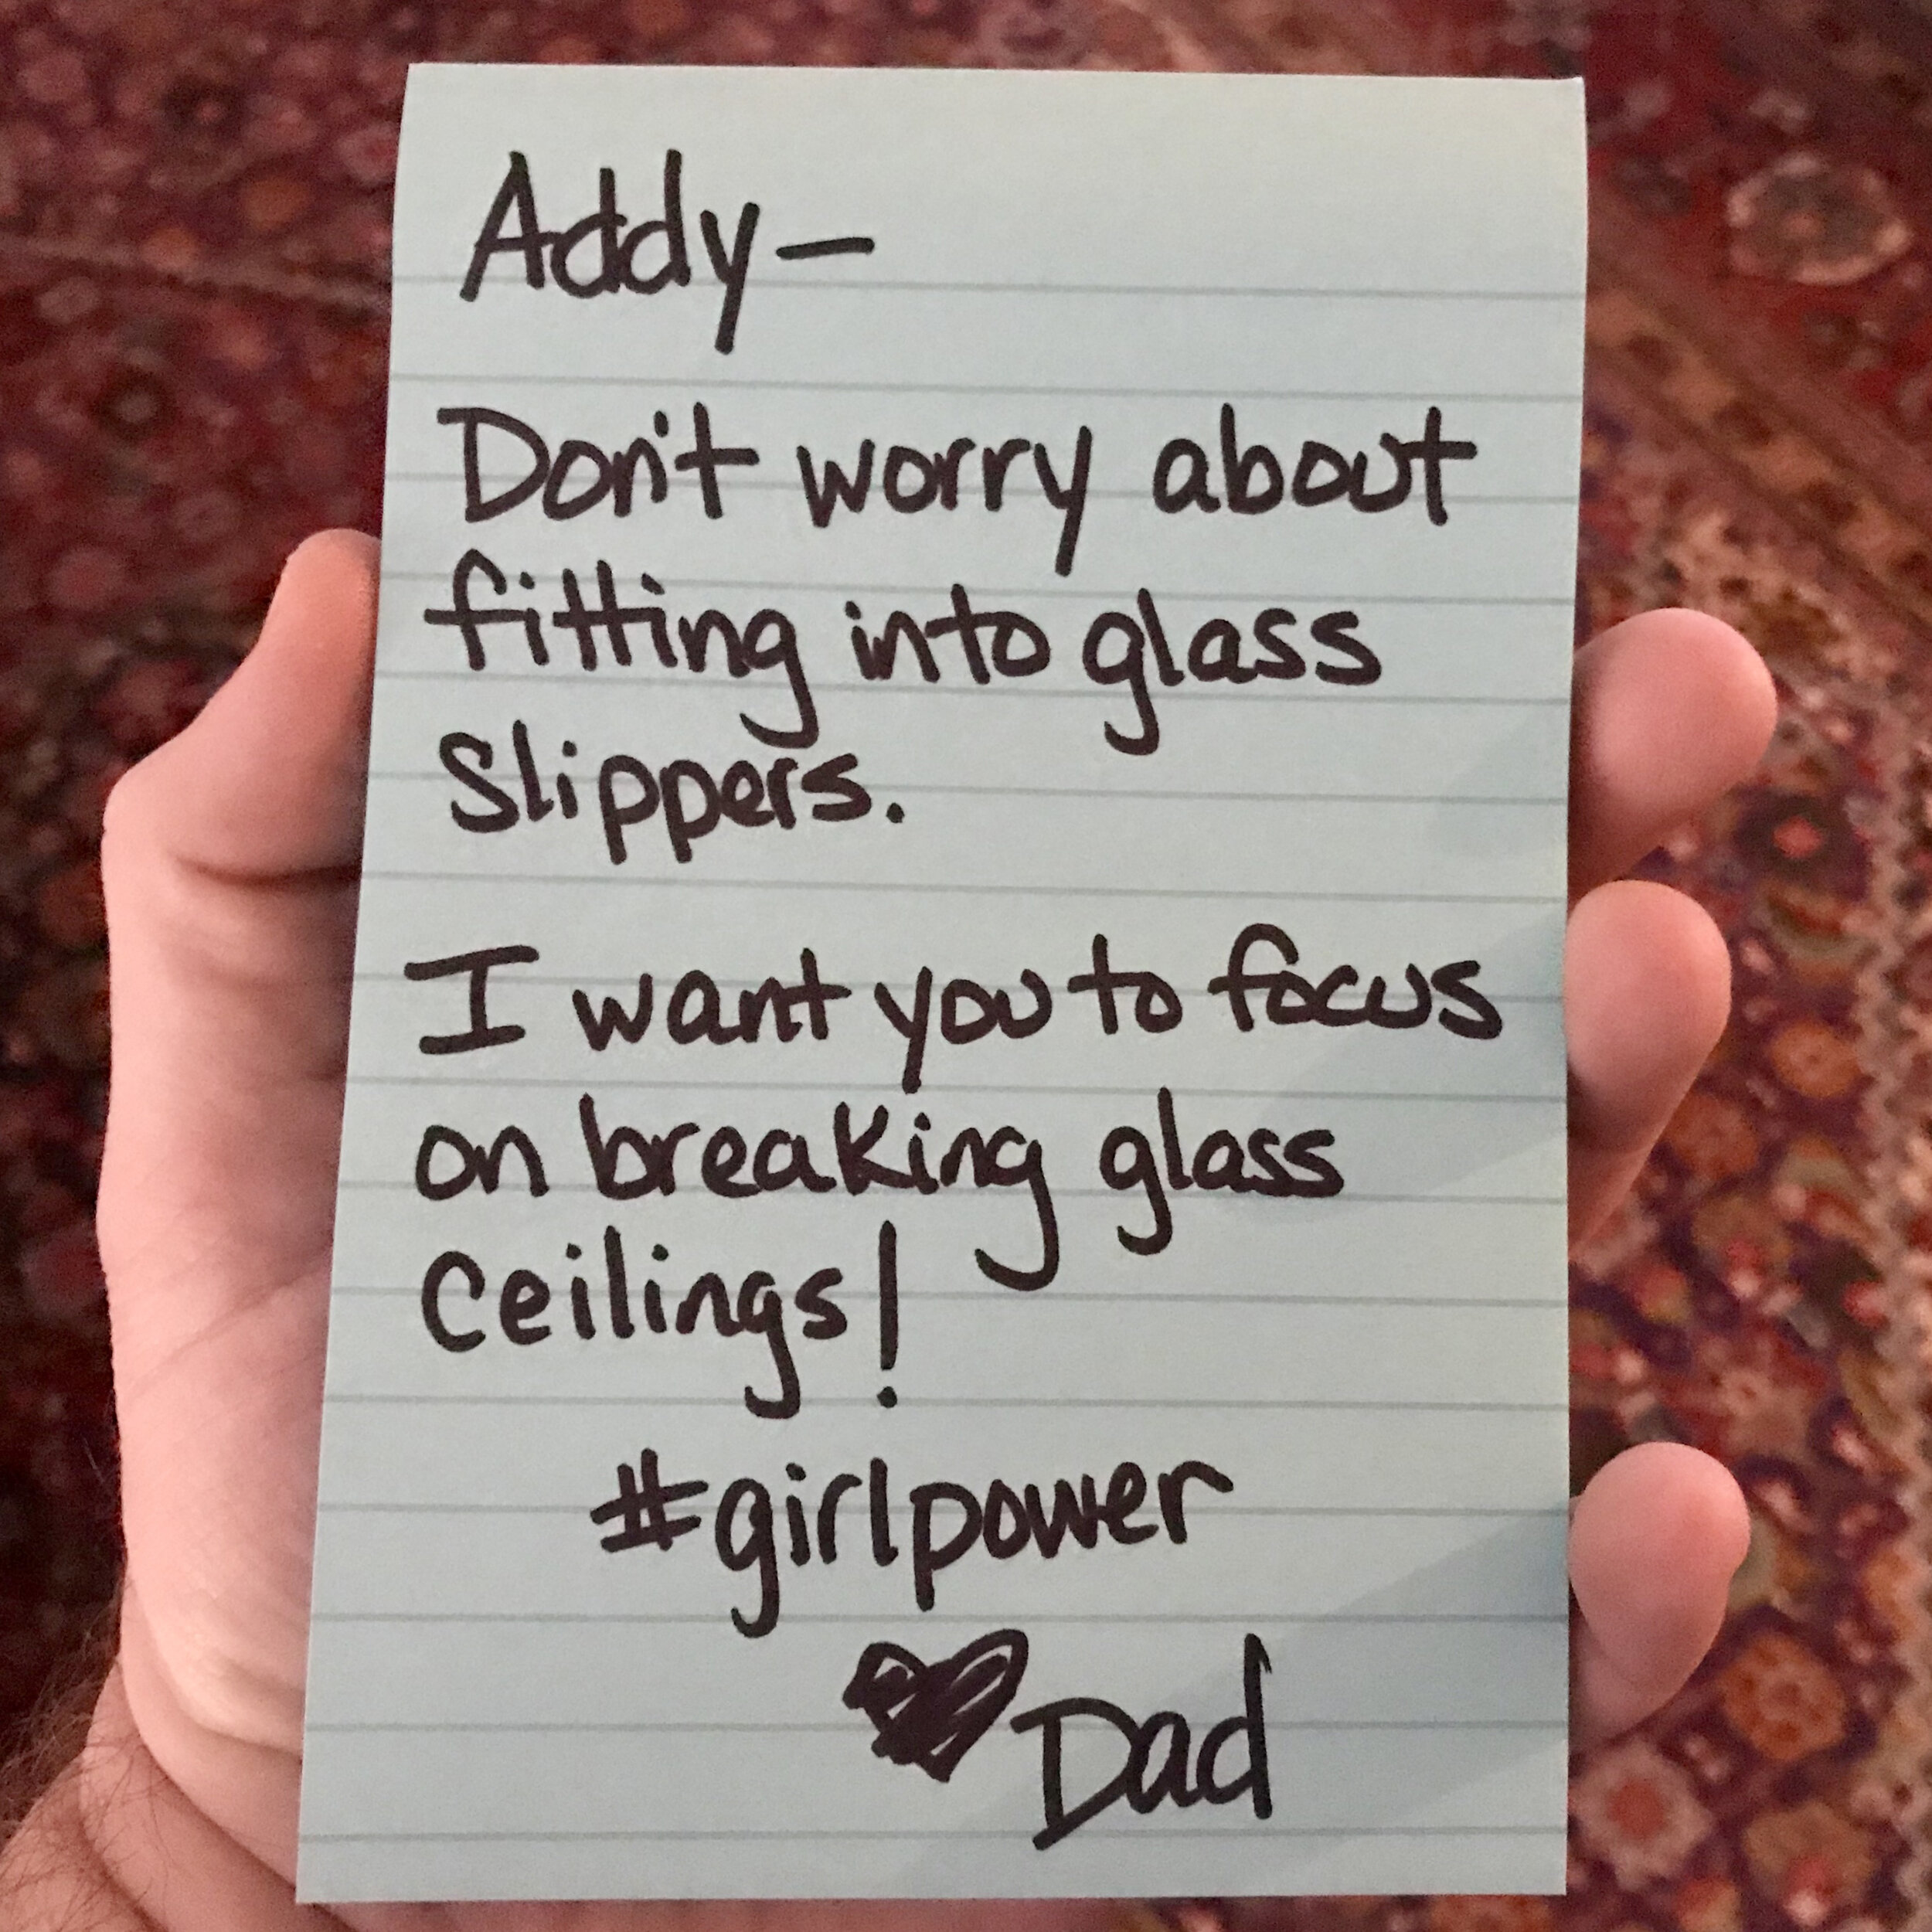 Addy—
Don't worry about
fitting into glass
Slippers.
I want you to focus
on breaking glass
Ceilings!
#girlpower
♥ Dad